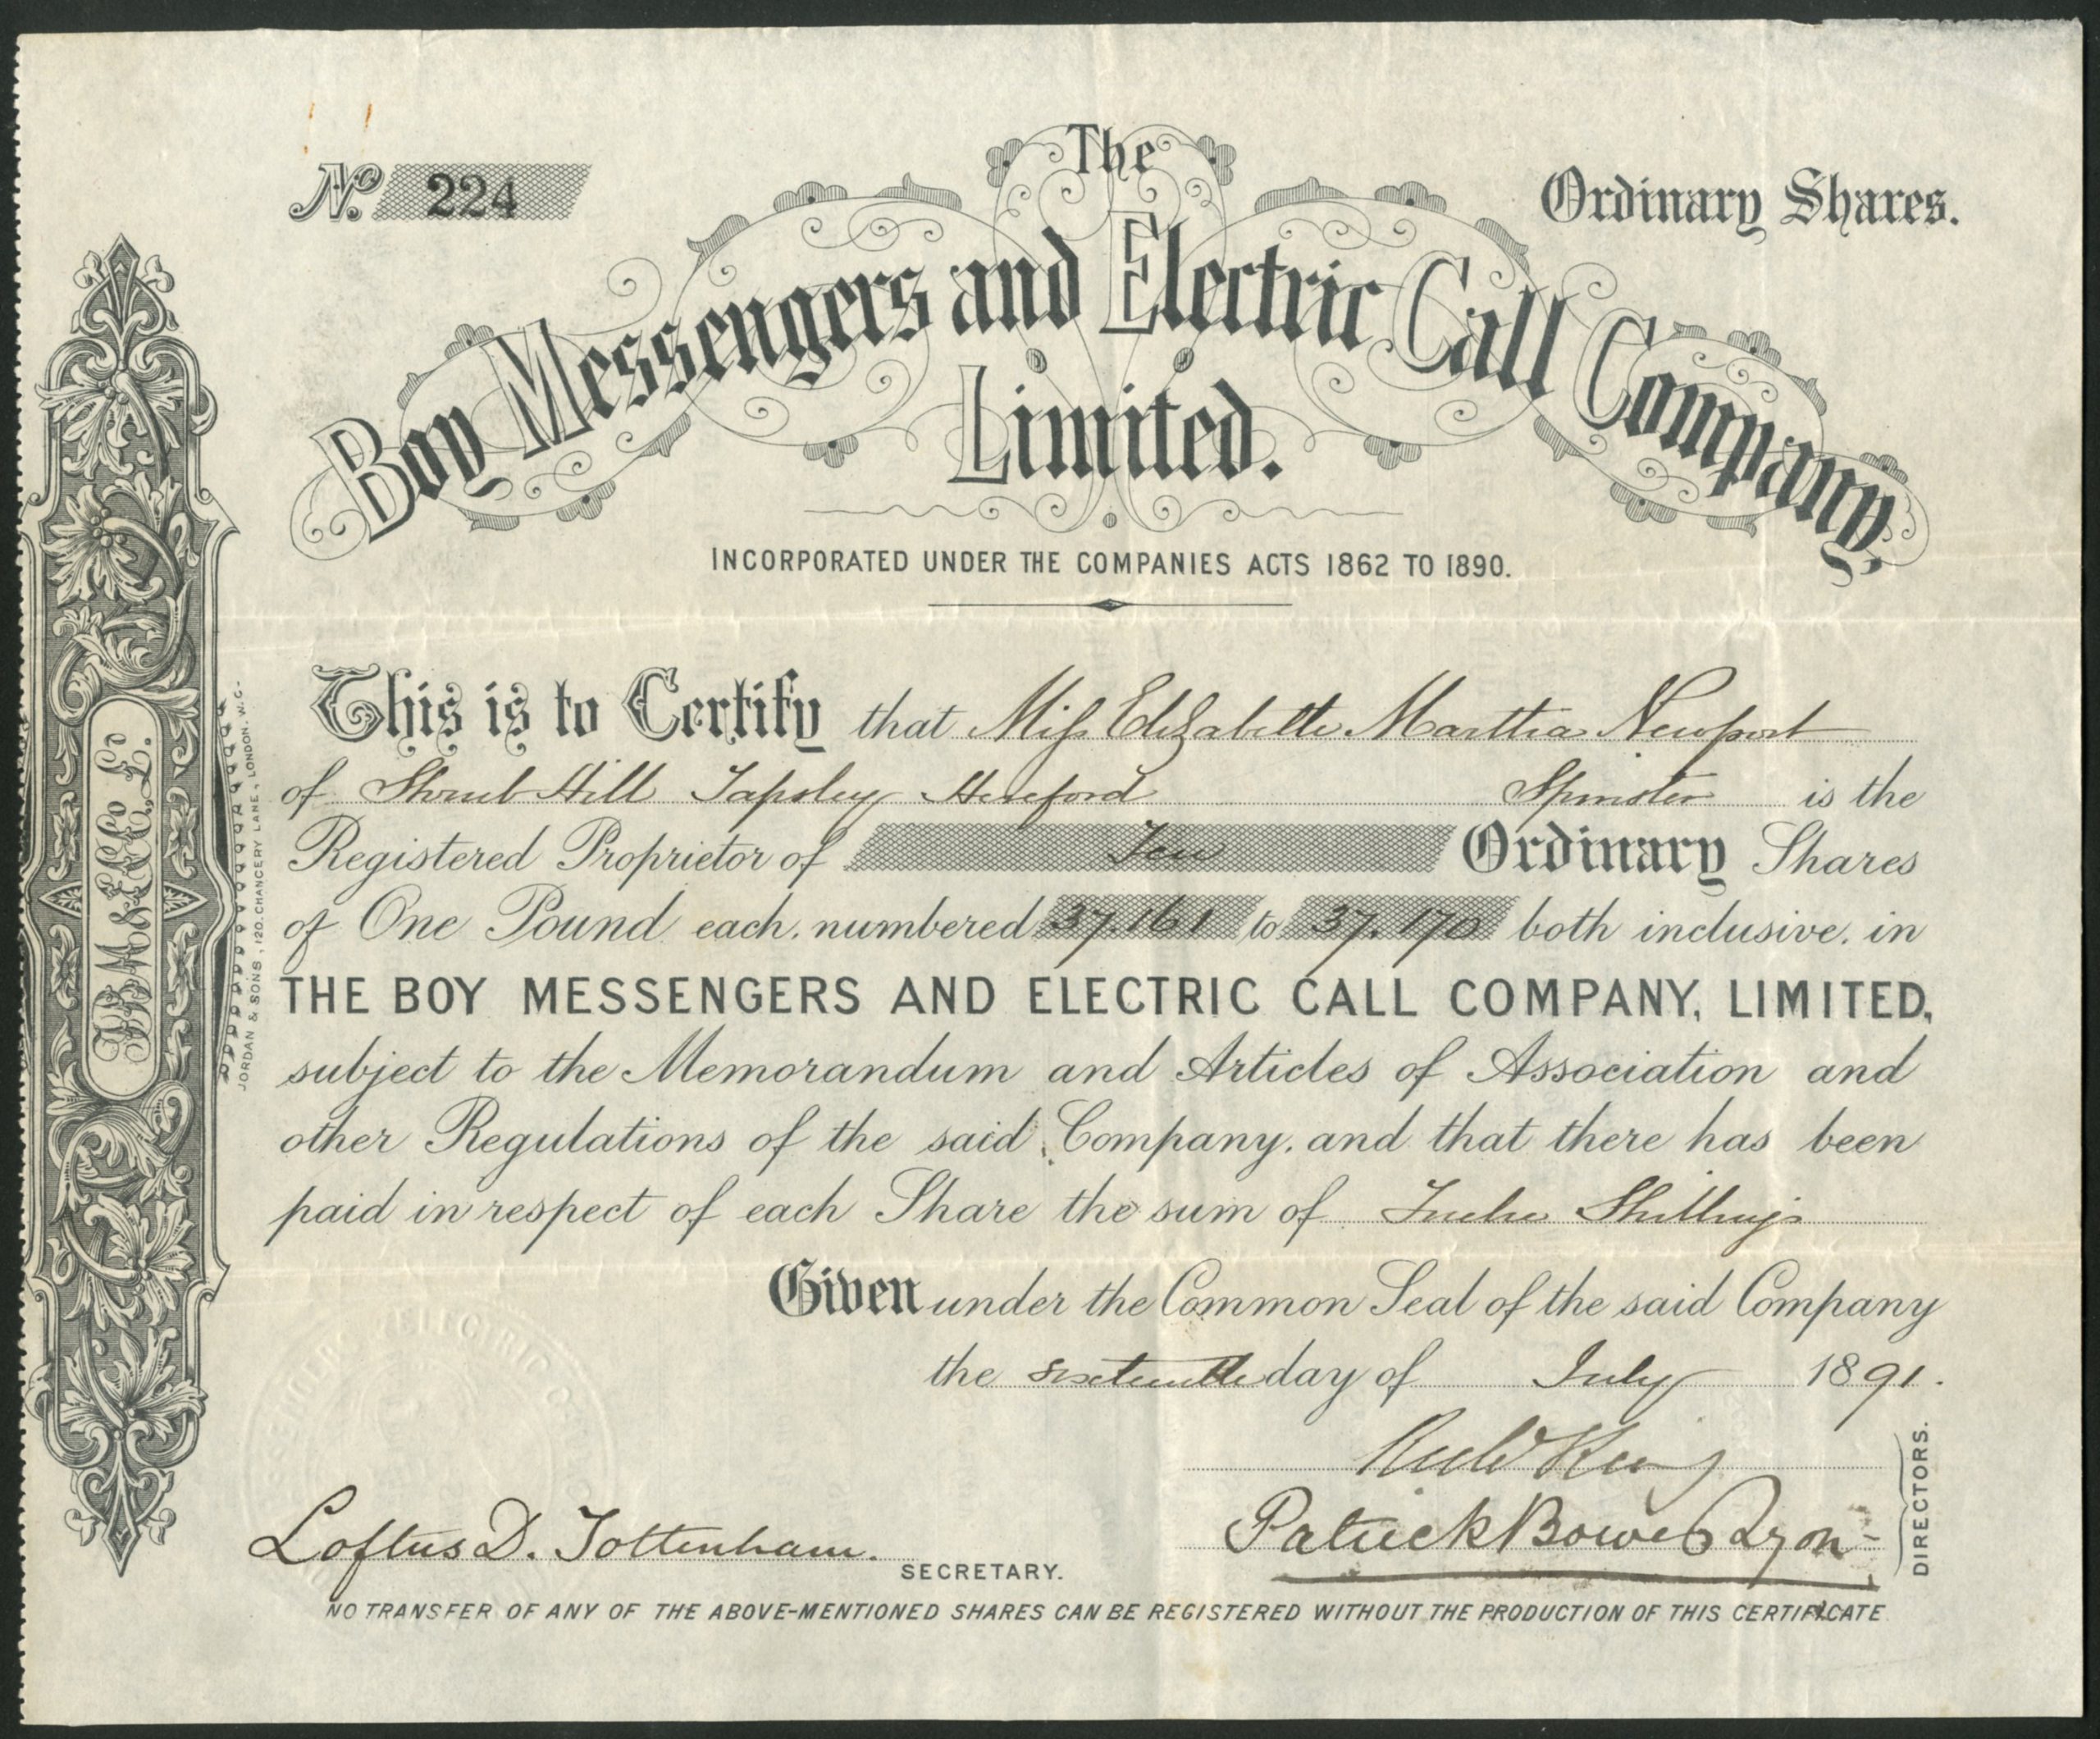 No. 224
Ordinary Shares.
The
Boy Messengers and Electric Call Company,
Limited.
INCORPORATED UNDER THE COMPANIES ACTS 1862 TO 1890.
This is to Certify that Miss Elizabeth Martha Newport
of Shrub Hill Tapsley Hereford Spinster is the
Registered Proprietor of Ten Ordinary Shares
of One Pound each, numbered 37.161 to 37.170 both inclusive, in
THE BOY MESSENGERS AND ELECTRIC CALL COMPANY, LIMITED,
subject to the Memorandum and Articles of Association and
other Regulations of the said Company, and that there has been
paid in respect of each Share the sum of Twelve Shillings
Given under the Common Seal of the said Company
the sixteenth day of July 1891.
Patrick Bowes Lyon
DIRECTORS.
Loftus D. Tottenham.
SECRETARY.
NO TRANSFER OF ANY OF THE ABOVE-MENTIONED SHARES CAN BE REGISTERED WITHOUT THE PRODUCTION OF THIS CERTIFICATE
JORDAN & SONS, 120, CHANCERY LANE, LONDON, W.C.